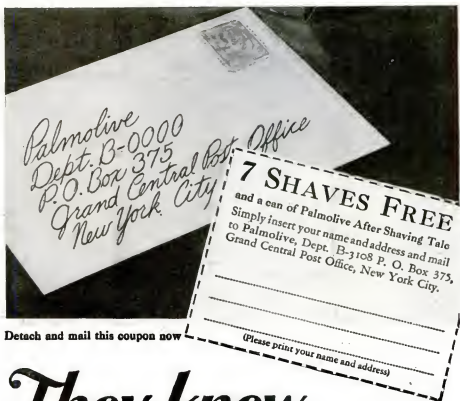 Palmolive
Dept. B-0000
P.O. Box 375
Grand Central Post Office
New York City
7 SHAVES FREE
and a can of Palmolive After Shaving Talc
Simply insert your name and address and mail
to Palmolive, Dept. B-3108 P. O. Box 375,
Grand Central Post Office, New York City.
(Please print your name and address)
Detach and mail this coupon now
They know